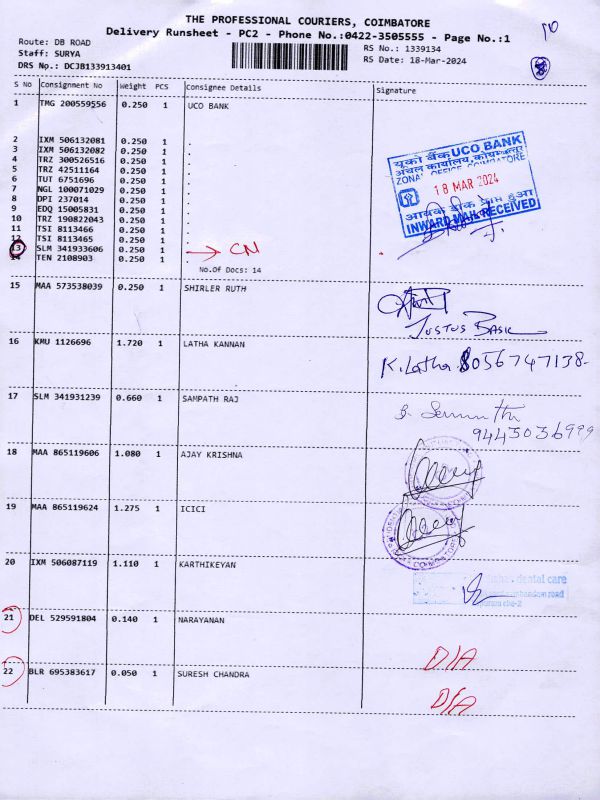 THE PROFESSIONAL COURIERS, COIMBATORE
Delivery Runsheet - PC2 - Phone No.:0422-3505555 - Page No.:1
Route: DB ROAD
Staff: SURYA
DRS No.: DCJB133913401
RS No.: 1339134
RS Date: 18-Mar-2024
S No Consignment No Weight PCS Consignee Details Signature
1 TMG 200559556 0.250 1 UCO BANK
2 IXM 506132081 0.250 1 .
3 IXM 506132082 0.250 1 .
4 TRZ 300526516 0.250 1 .
5 TRZ 42511164 0.250 1 .
6 TUT 6751696 0.250 1 .
7 NGL 100071029 0.250 1 .
8 DPI 237014 0.250 1 .
9 EDQ 15005831 0.250 1 .
10 TRZ 190822043 0.250 1 .
11 TSI 8113466 0.250 1 .
12 TSI 8113465 0.250 1 .
13 SLM 341933606 0.250 1 . → CN
14 TEN 2108903 0.250 1 .
No.Of Docs: 14
यूको बैंक UCO BANK
अंचल कार्यालय, कोयम्बत्तूर
ZONAL OFFICE, COIMBATORE
18 MAR 2024
आवक डाक प्राप्त हुआ
INWARD MAIL RECEIVED
15 MAA 573538039 0.250 1 SHIRLER RUTH
JUSTUS BASIL
16 KMU 1126696 1.720 1 LATHA KANNAN K. Latha 8056747138-
17 SLM 341931239 0.660 1 SAMPATH RAJ
9443036999
18 MAA 865119606 1.080 1 AJAY KRISHNA
19 MAA 865119624 1.275 1 ICICI
20 IXM 506087119 1.110 1 KARTHIKEYAN
dental care
21 DEL 529591804 0.140 1 NARAYANAN
D/A
22 BLR 695383617 0.050 1 SURESH CHANDRA
D/A